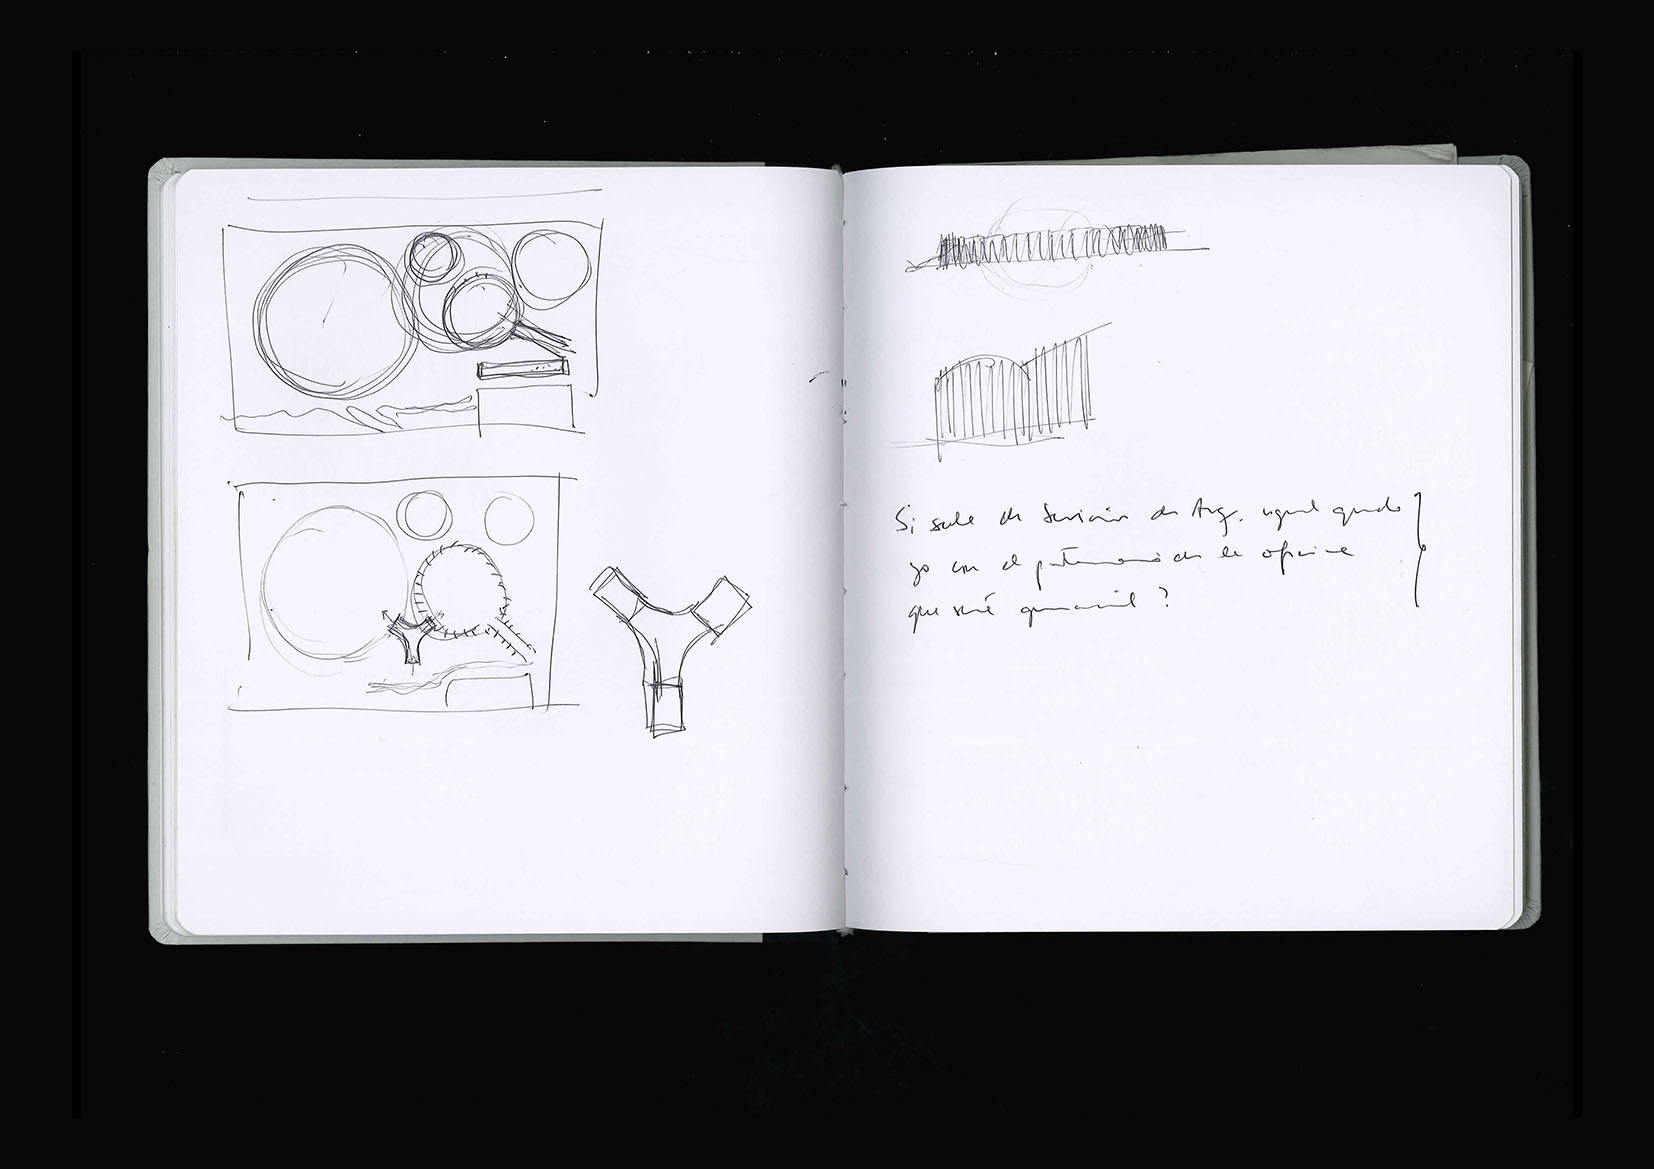 Si sale de Servicios de Arq. igual quedo
yo con el patrimonio de la oficina
que seré
?